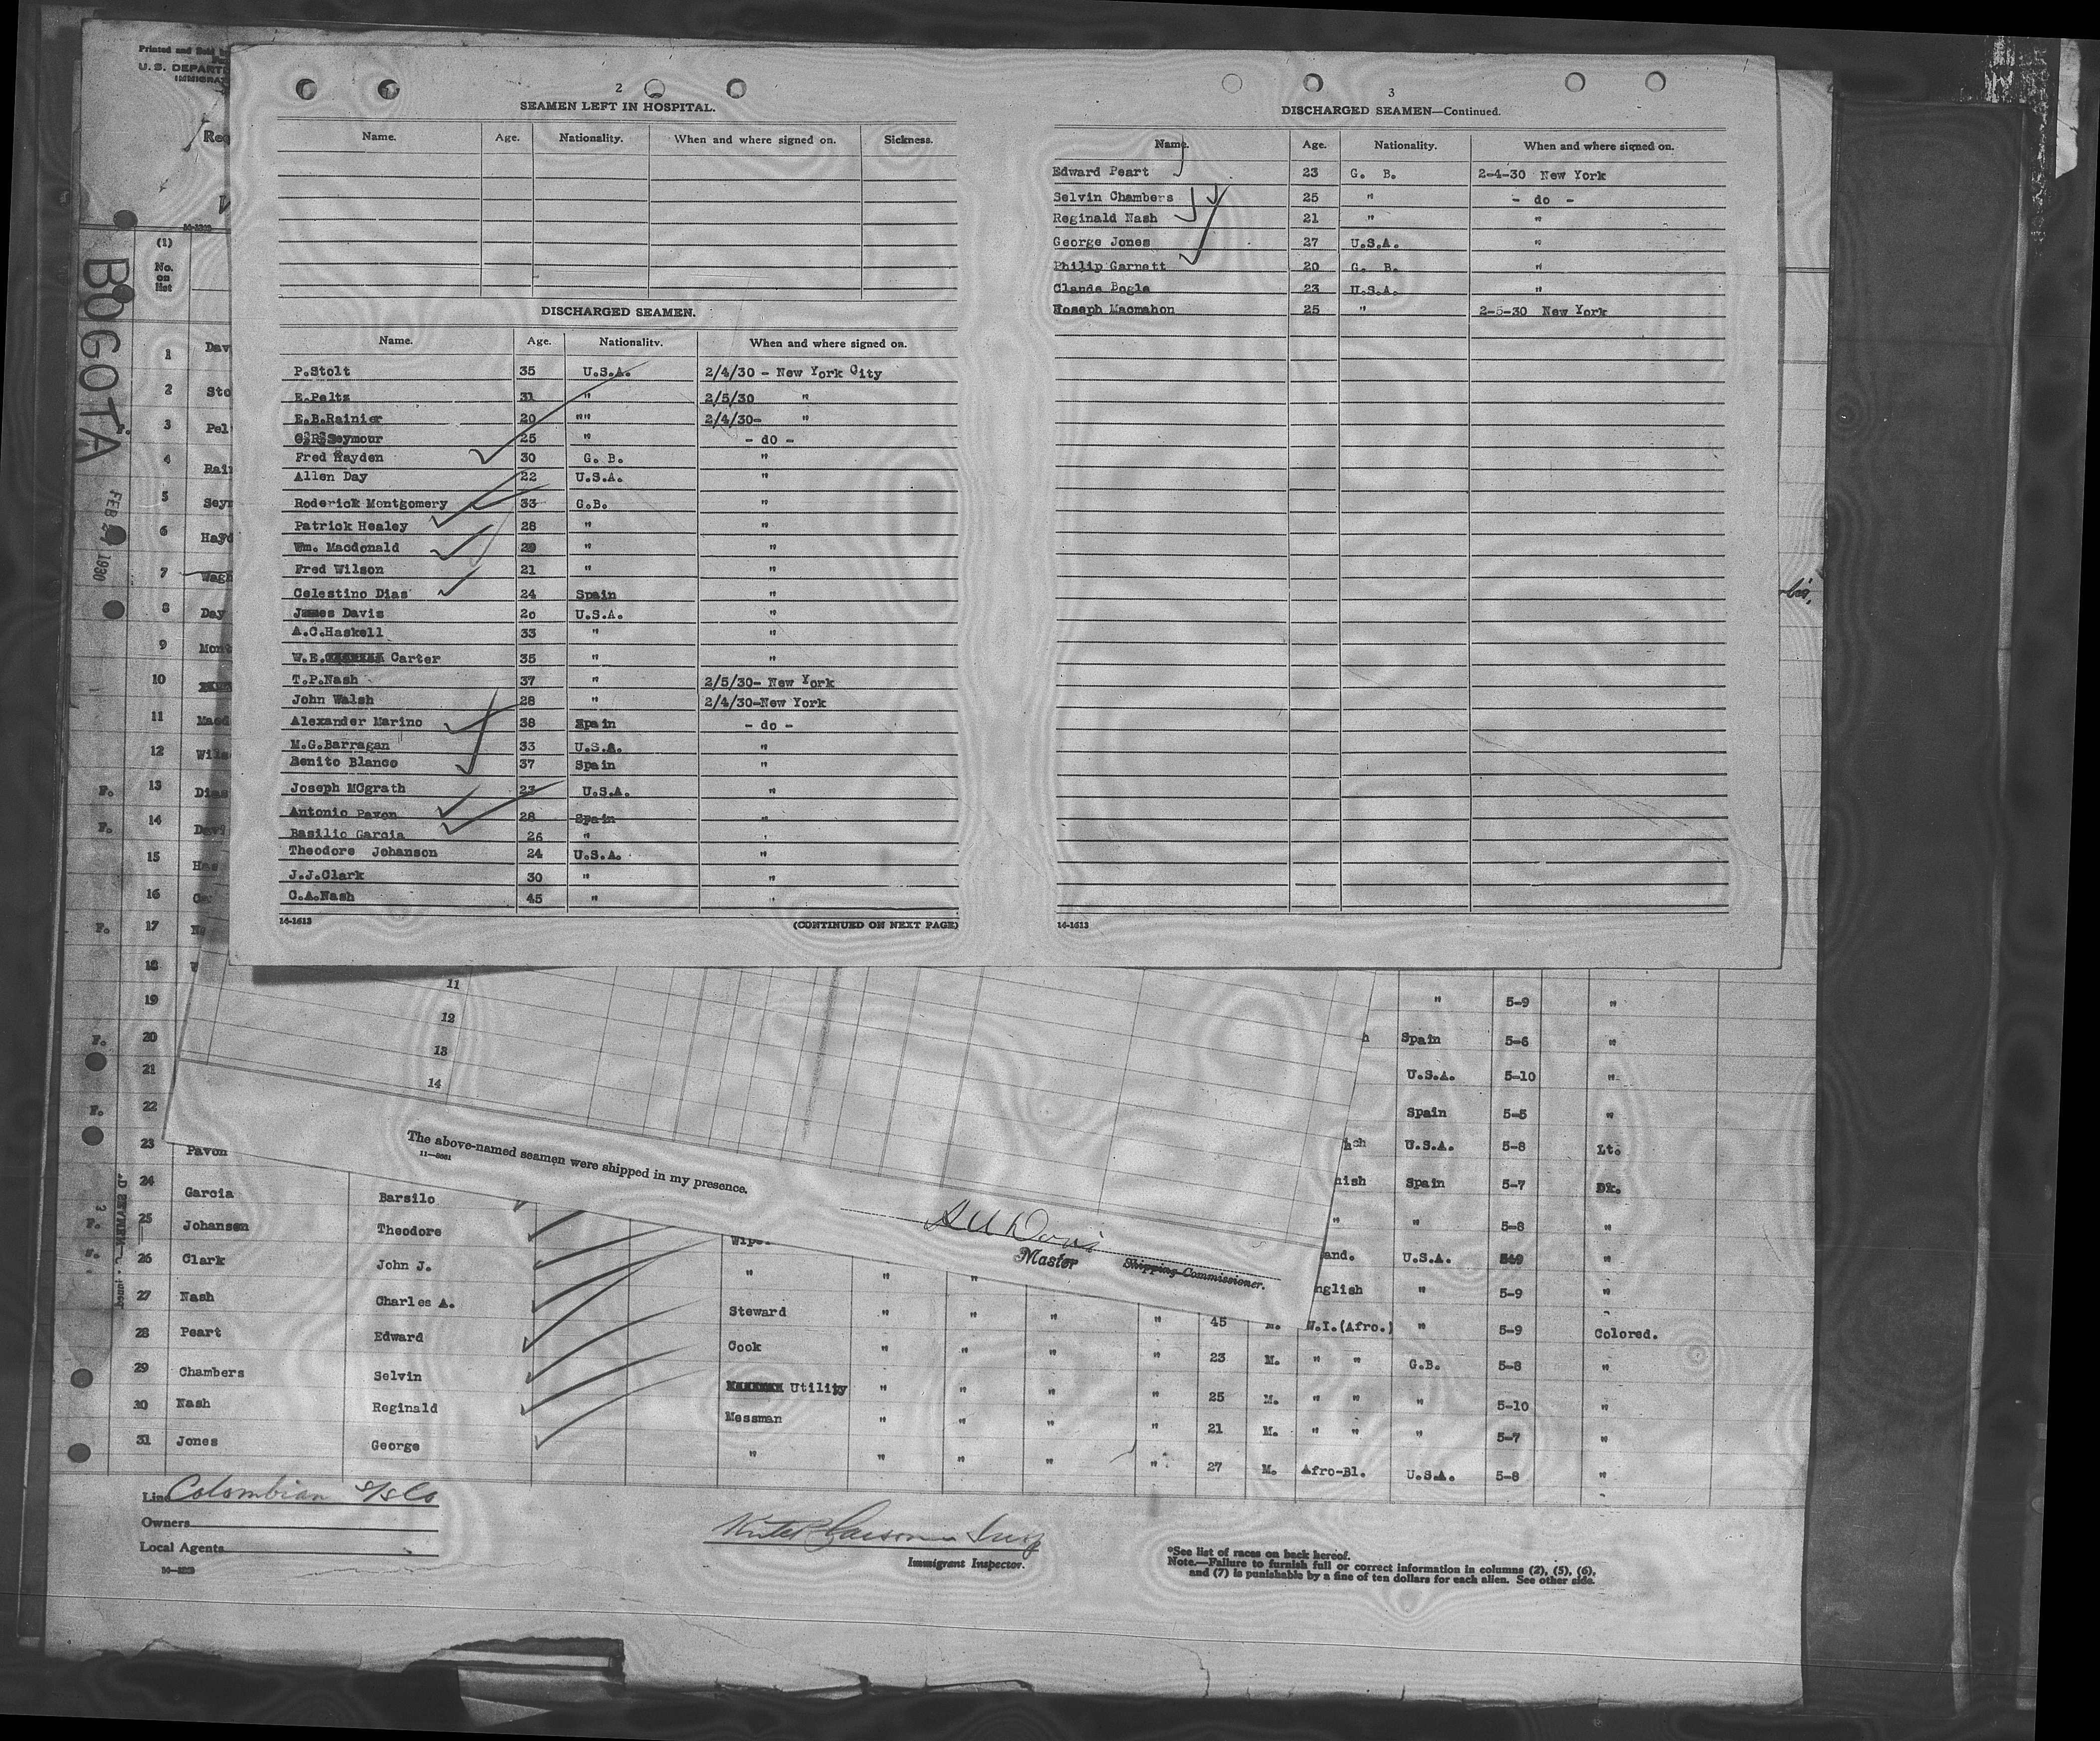 Printed and Sold by
U. S. DEPARTM
IMMIGRAT
Req
BOGOTA
FEB 27 1930
(1)
No.
on
list
1 Dav
2 Sto
F. 3 Pel
4 Rain
5 Seym
6 Hayd
7 Wagn
8 Day
9 Mont
10
11 Macd
12 Wils
F. 13 Dias
F. 14 Davi
15 Has
16 Car
F. 17 Na
18 W
19
F. 20
21
F. 22
23
2
SEAMEN LEFT IN HOSPITAL.
Name. Age. Nationality. When and where signed on. Sickness.
DISCHARGED SEAMEN.
Name. Age. Nationality. When and where signed on.
P.Stolt 35 U.S.A. 2/4/30 - New York City
E.Peltz 31 " 2/5/30 "
E.B.Rainier 20 "" 2/4/30- "
Seymour 25 " - do -
Fred Hayden 30 G. B. "
Allen Day 22 U.S.A. "
Roderick Montgomery 33 G.B. "
Patrick Healey 28 " "
Wm. Macdonald 29 " "
Fred Wilson 21 " "
Celestino Dias 24 Spain "
James Davis 20 U.S.A. "
A.C.Haskell 33 " "
W.E. Carter 35 " "
T.P.Nash 37 " 2/5/30- New York
John Walsh 28 " 2/4/30-New York
Alexander Marino 38 Spain - do -
M.G.Barragan 33 U.S.A. "
Benito Blanco 37 Spain "
Joseph MCgrath 23 U.S.A. "
Antonio Pavon 28 Spain "
Basilio Garcia 26 " "
Theodore Johanson 24 U.S.A. "
J.J.Clark 30 " "
C.A.Nash 45 " "
14-1613 (CONTINUED ON NEXT PAGE)
3
DISCHARGED SEAMEN—Continued.
Name. Age. Nationality. When and where signed on.
Edward Peart 23 G. B. 2-4-30 New York
Selvin Chambers 25 " - do -
Reginald Nash 21 " "
George Jones 27 U.S.A. "
Philip Garnett 20 G. B. "
Claude Bogle 23 U.S.A. "
Hoseph Macmahon 25 " 2-5-30 New York
14-1613
11
12
13
14
The above-named seamen were shipped in my presence.
Master Shipping Commissioner.
" 5-9 "
Spain 5-6 "
U.S.A. 5-10 "
Spain 5-5 "
U.S.A. 5-8 Lt.
Pavon nish Spain 5-7 Dk.
24 Garcia Barsilo " " 5-8 "
F. 25 Johansen Theodore and. U.S.A. "
26 Clark John J. " " " nglish " 5-9 "
27 Nash Charles A. Steward " " " " 45 M. W.I.(Afro.) " 5-9 Colored.
28 Peart Edward Cook " " " " 23 M. " " G.B. 5-8 "
29 Chambers Selvin Utility " " " " 25 M. " " " 5-10 "
30 Nash Reginald Messman " " " " 21 M. " " " 5-7 "
31 Jones George " " " " " 27 M. Afro-Bl. U.S.A. 5-8 "
Line Colombian S/S Co
Owners
Local Agents
Immigrant Inspector.
*See list of races on back hereof.
Note.—Failure to furnish full or correct information in columns (2), (5), (6),
and (7) is punishable by a fine of ten dollars for each alien. See other side.